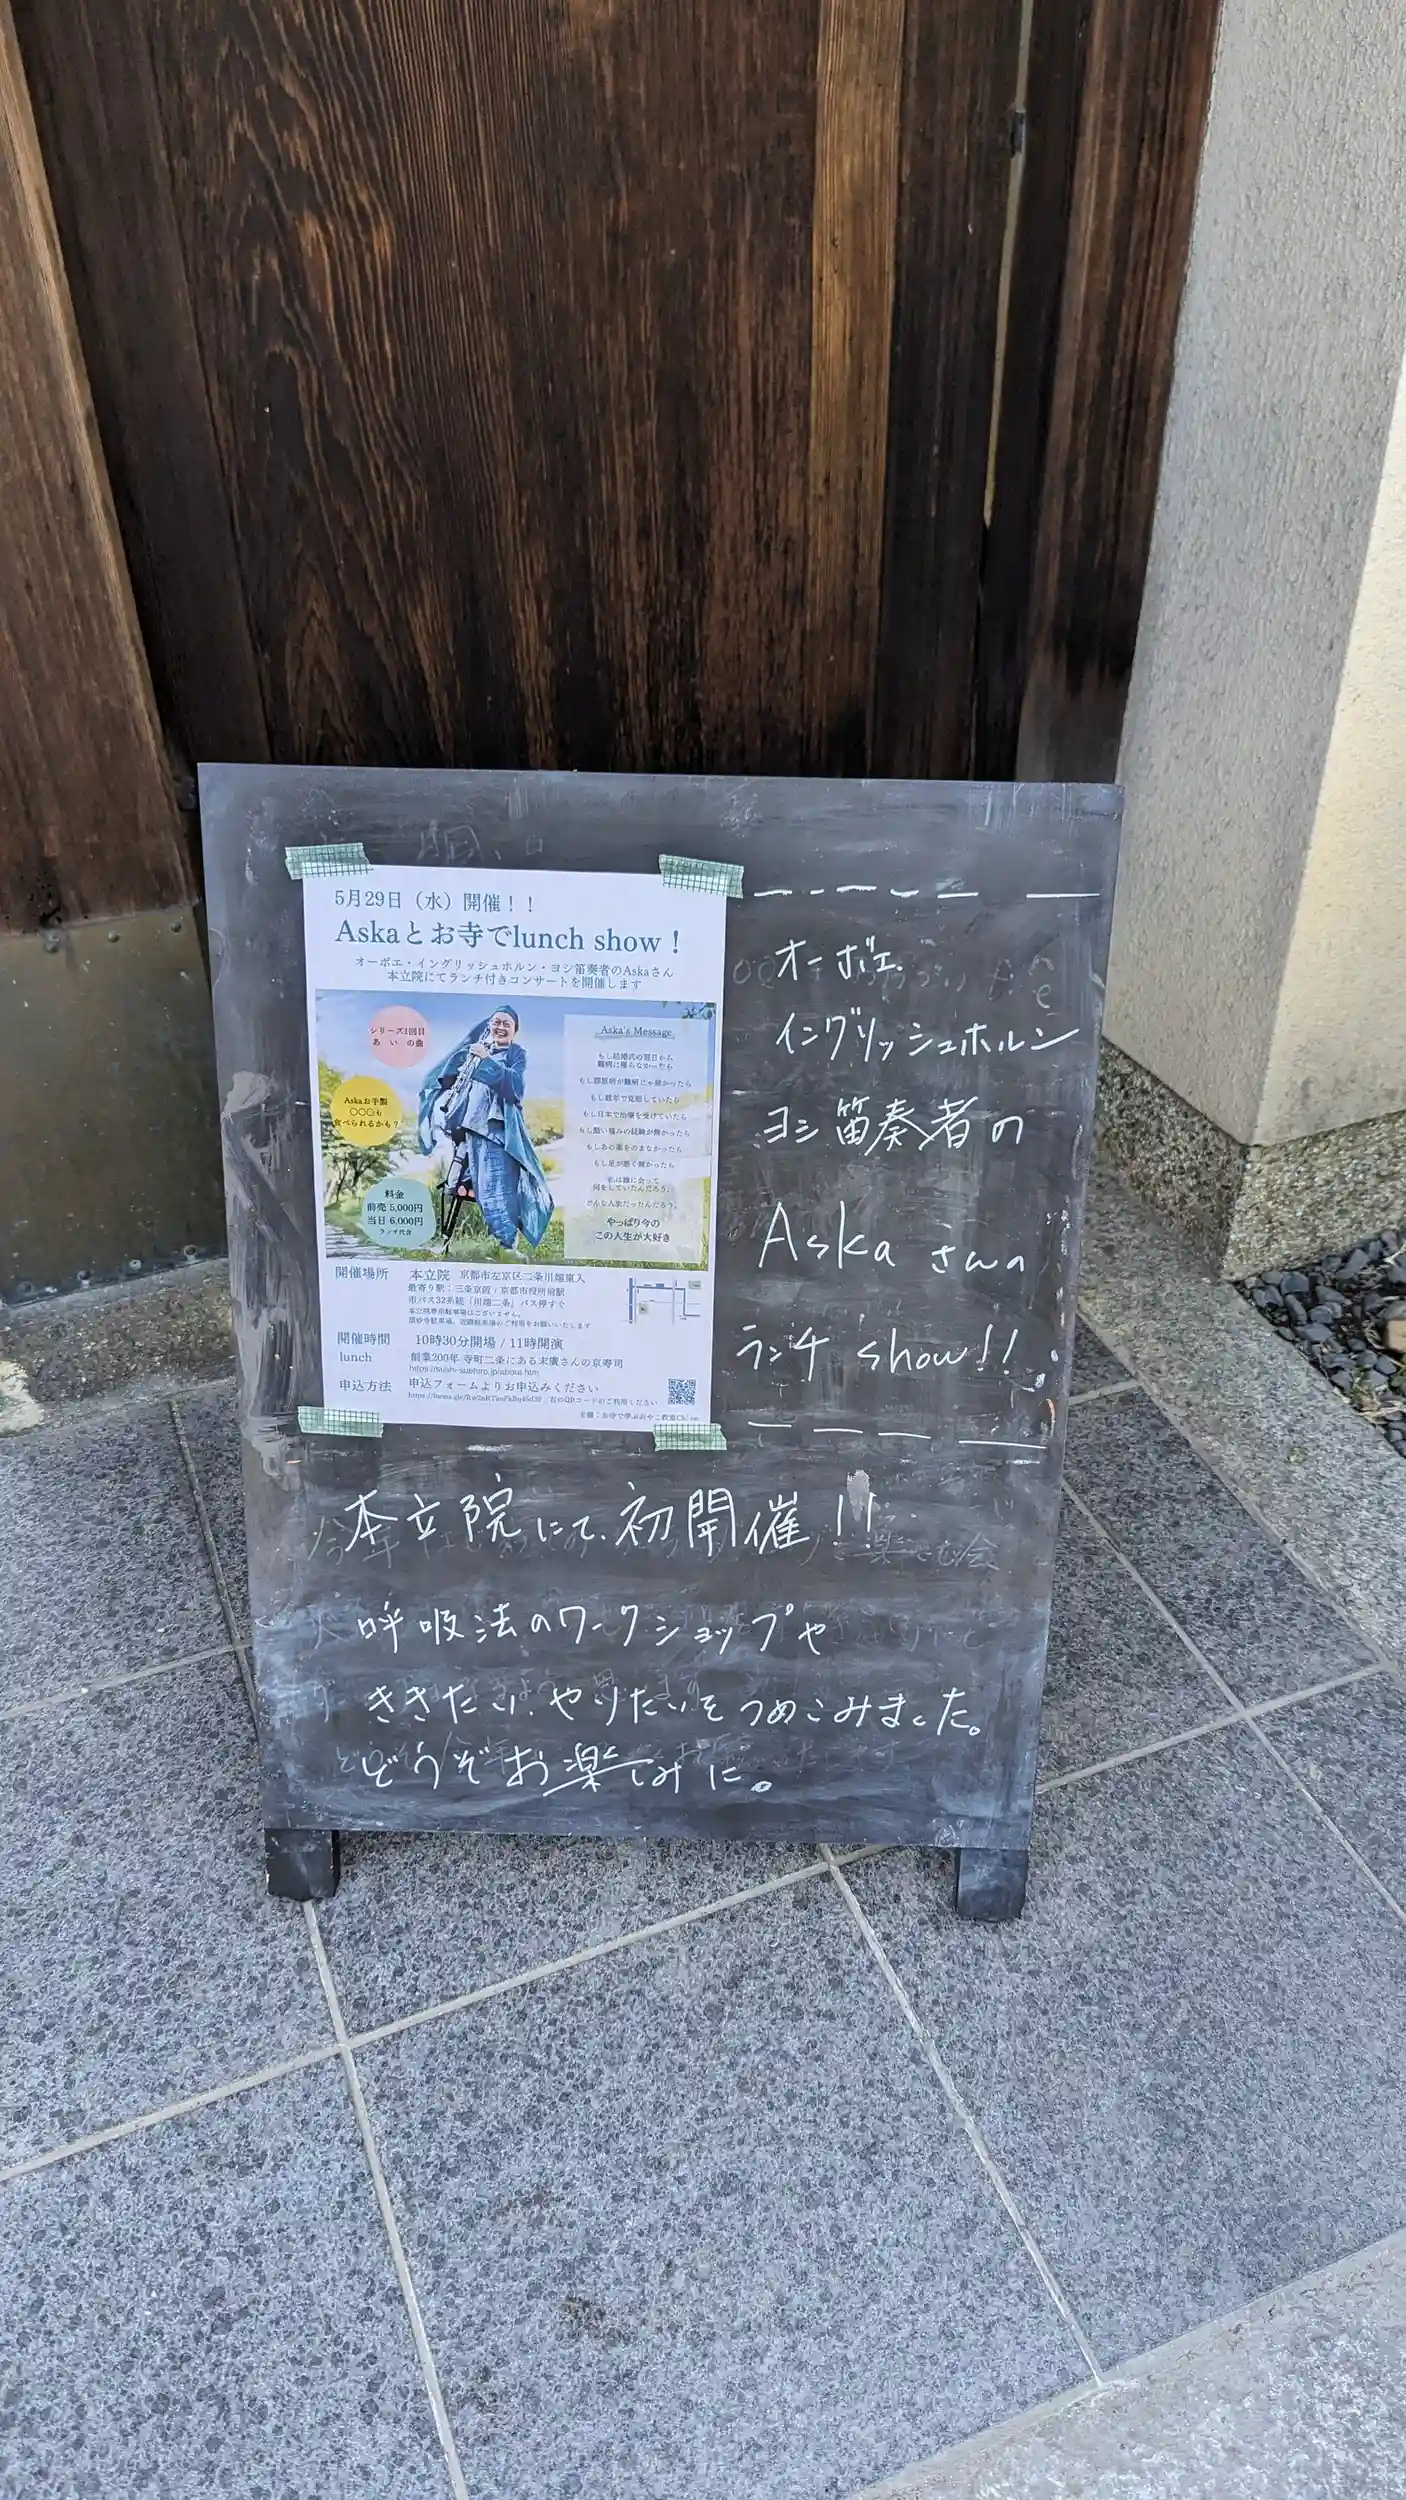 5月29日（水）開催！！
Askaとお寺でlunch show！
オーボエ・イングリッシュホルン・ヨシ笛奏者のAskaさん
本立院にてランチ付きコンサートを開催します
シリーズ1回目
あいの曲
Askaお手製
〇〇〇も
食べられるかも？
料金
前売 5,000円
当日 6,000円
ランチ代含
Aska's Message
もし結婚式の翌日から
難病に罹らなかったら
もし膠原病が難病じゃ無かったら
もし数年で克服していたら
もし日本で治療を受けていたら
もし酷い痛みの経験が無かったら
もしあの薬をのまなかったら
もし足が悪く無かったら
私は誰に会って
何をしていたんだろう。
どんな人生だったんだろう。
やっぱり今の
この人生が大好き
開催場所 本立院 京都市左京区二条川端東入
最寄り駅：三条京阪 / 京都市役所前駅
市バス32系統「川端二条」バス停すぐ
本立院専用駐車場はございません。
開催時間 10時30分開場 / 11時開演
lunch 創業200年 寺町二条にある末廣さんの京寿司
https://sushi-suehiro.jp/about.htm
申込方法 申込フォームよりお申込みください
右のQRコードのご利用ください
オーボエ.
イングリッシュホルン
ヨシ笛奏者の
Aska さんの
ランチ show!!
本立院にて、初開催!!
呼吸法のワークショップや
ききたい、やりたいをつめこみました。
どうぞお楽しみに。